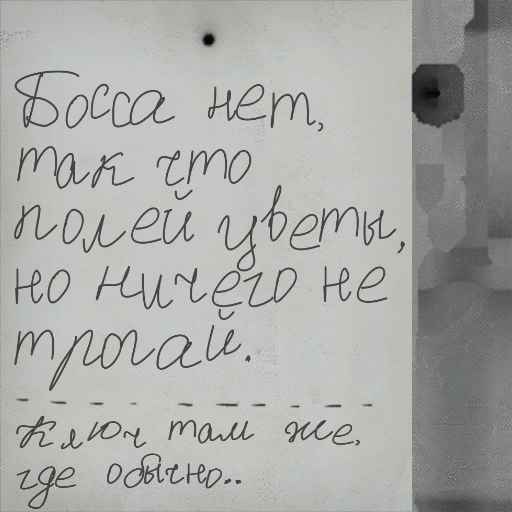 Босса нет,
так что
полей цветы,
но ничего не
трогай.
Ключ там же,
где обычно..